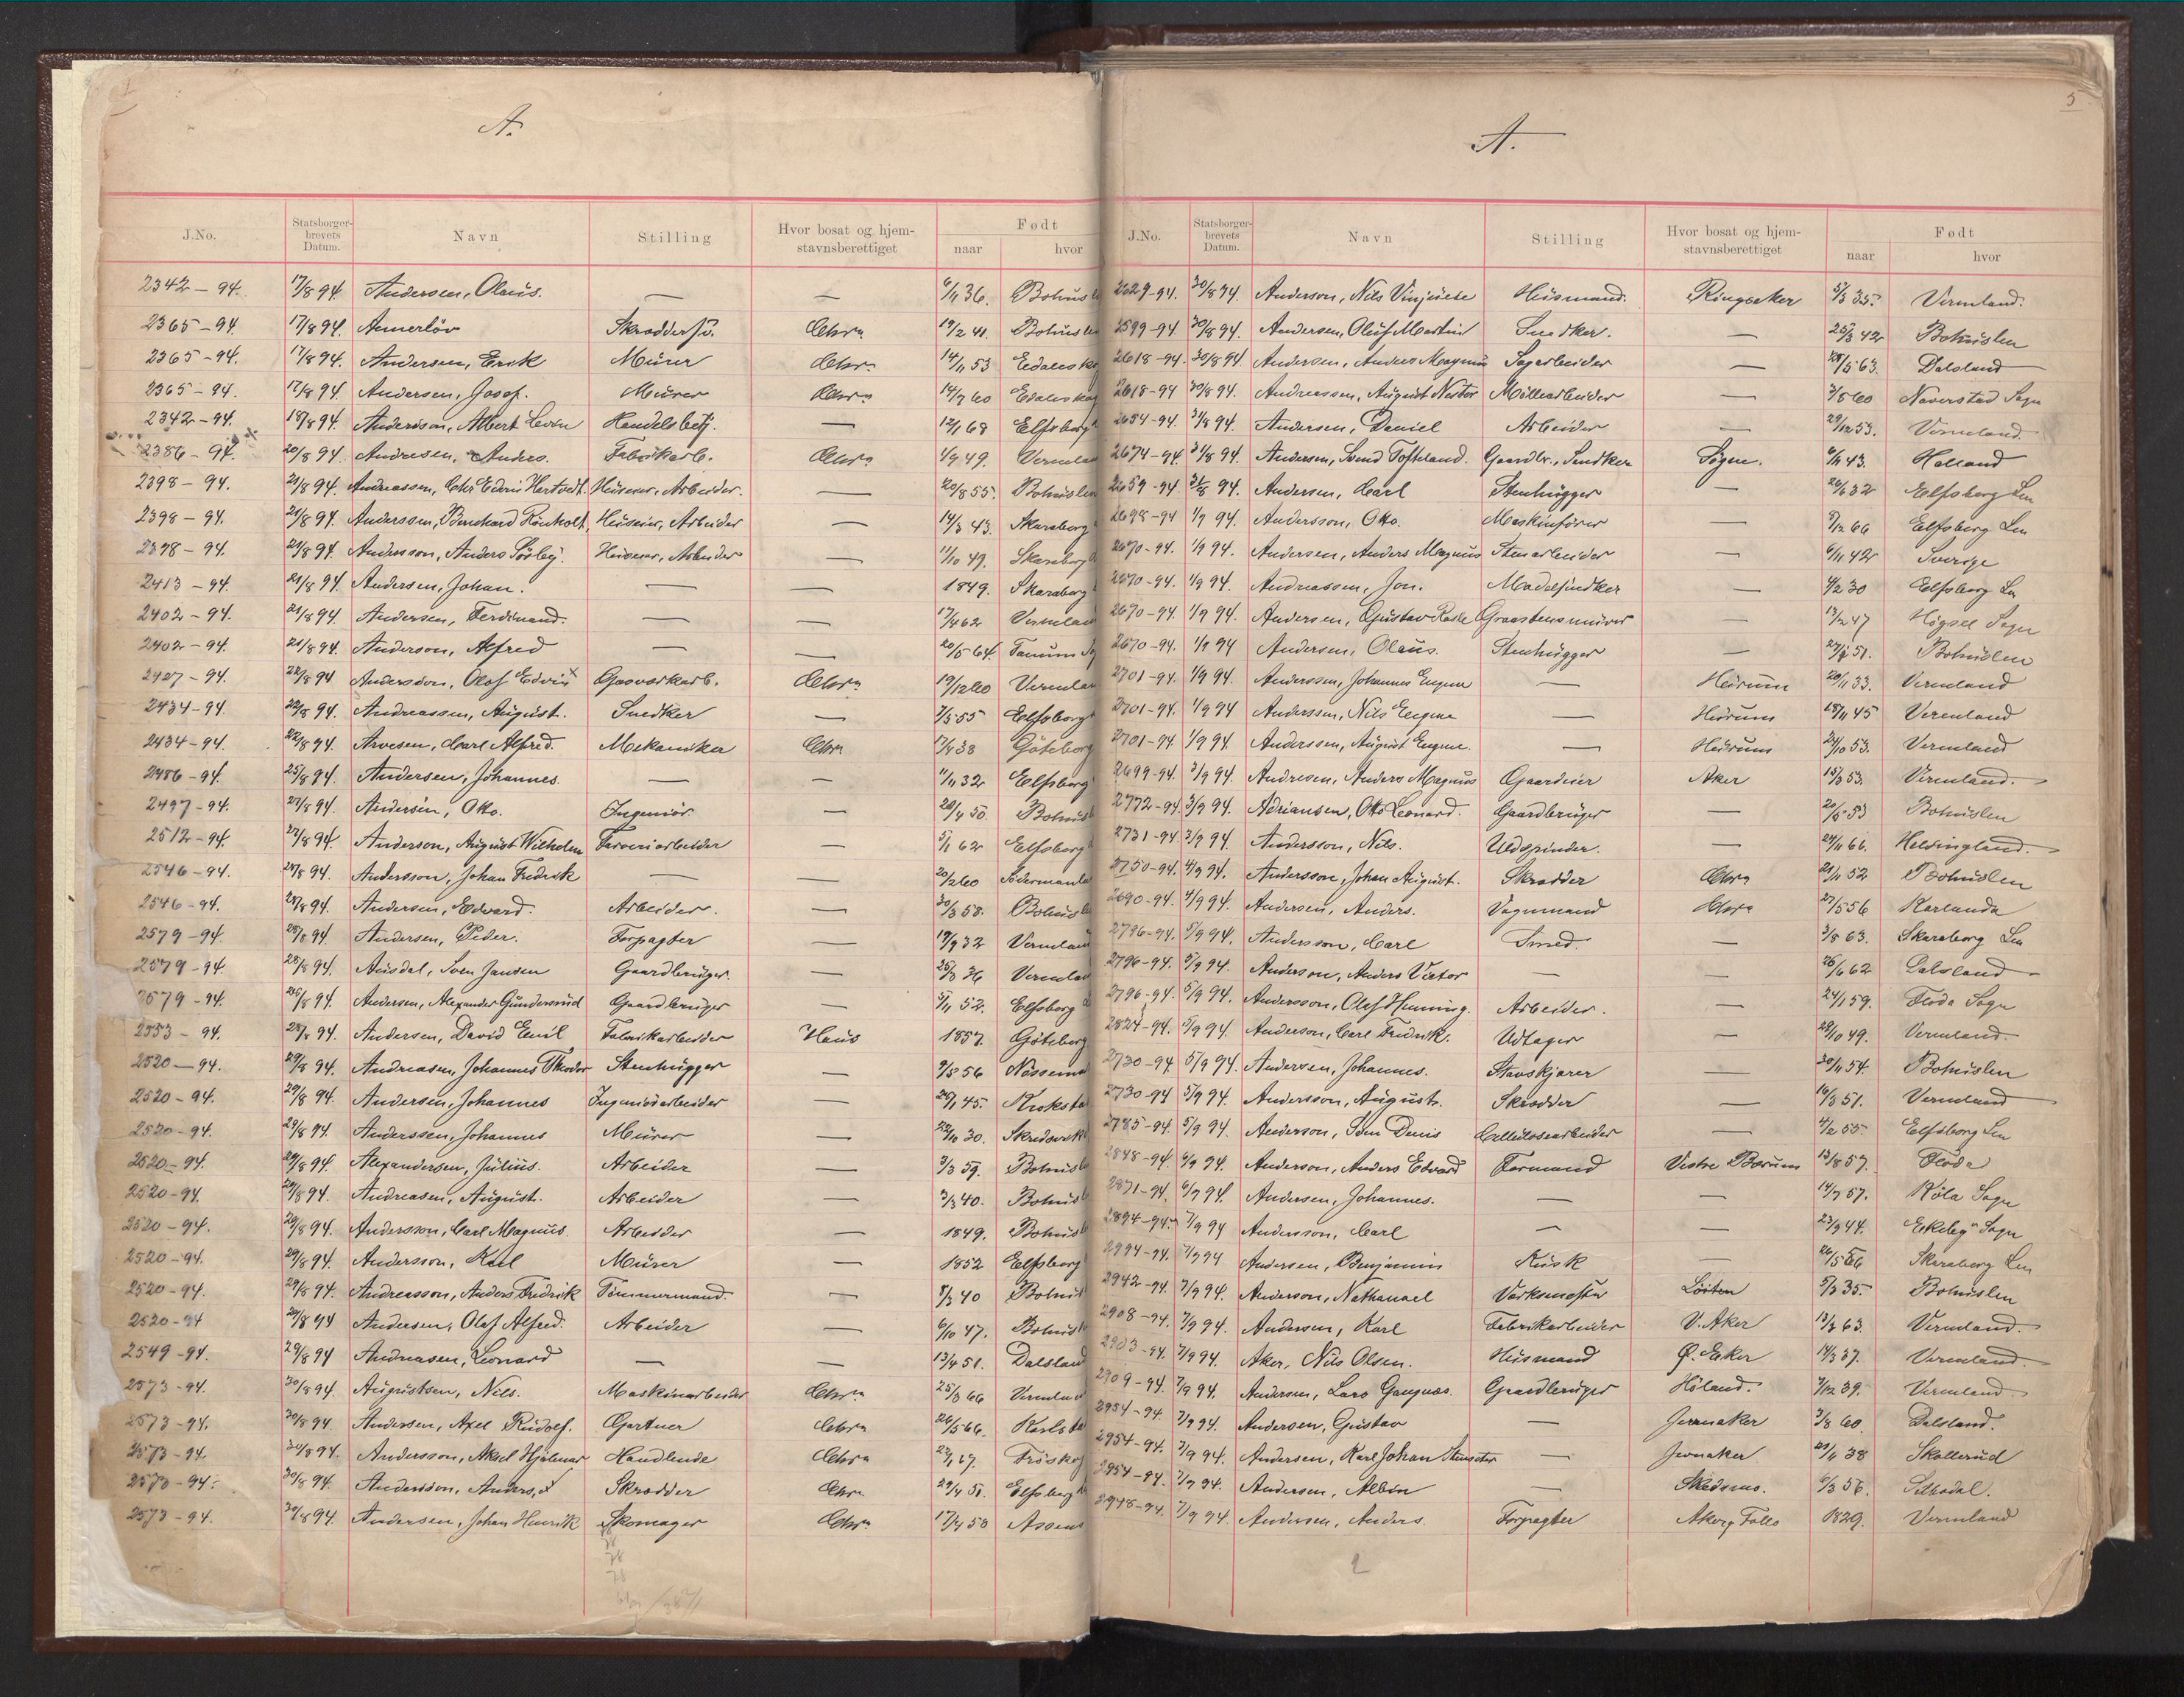 A.
J.No. Statsborger-brevets Datum. Navn Stilling Hvor bosat og hjem-stavnsberettiget Født naar hvor
2342 – 94. 17/8 94. Andersen, Olaus. — — 6/11 36. Bohusl
2365 – 94. 17/8 94. Annerlöv Skrædder Chra 19/2 41. Bohuslen
2365 – 94. 17/8 94. Andersen, Erik Murer Chra 14/11 53 Edaleskog
2365 – 94. 17/8 94. Andersen, Josef. Murer Chra 14/7 60 Edaleskog
2342 – 94. 18/8 94. Andersson, Albert Handelsbetj. — 12/1 68 Elfsborg
2386 – 94. 20/8 94. Andresen, Anders. Fabrikarb. Chra 1/9 49. Vermlan
2398 – 94. 21/8 94. Andreassen, Chr Edvin Hertvedt. Huseier, Arbeider. — 20/8 55. Bohuslen
2398 – 94. 21/8 94. Anderssen, Bernhard Rönholt. Huseier, Arbeider — 14/3 43. Skaraborg
2398 – 94. 21/8 94. Andersson, Anders Sörby. Huseier, Arbeider — 11/10 49. Skaraborg
2413 – 94. 21/8 94. Andersen, Johan. — — 1849. Skaraborg
2402 – 94. 21/8 94. Andersen, Ferdinand. — — 17/4 62 Vermlan
2402 – 94. 21/8 94. Anderson, Alfred — — 20/5 64. Tanum
2427 – 94. 22/8 94 Andersson, Olof Edvin Gasværkarb. Chra 19/12 60 Vermlan
2434 – 94. 22/8 94. Andreassen, August. Snedker — 7/5 55 Elfsborg
2434 – 94. 22/8 94. Arvesen, Carl Alfred. Mekaniker Chra 17/9 38 Göteborg
2486 – 94. 25/8 94. Andersen, Johannes. — — 11/11 32 Elfsborg
2497 – 94. 27/8 94. Andersen, Otto. Ingeniör. — 20/4 50. Bohusl
2512 – 94. 27/8 94. Anderson, August Wilhelm Farveriarbeider — 5/1 62 Elfsborg
2546 – 94. 28/8 94. Andersson, Johan Fredrik — — 20/2 60 Södermanla
2546 – 94. 28/8 94. Andersen, Edvard. Arbeider. — 30/3 58. Bohusl
2579 – 94. 28/8 94. Andersen, Peder. Forpagter — 19/9 32 Vermland
2579 – 94. 28/8 94. Ausdal, Sven Jansen Gaardbruger — 25/3 36 Vermlan
2579 – 94. 28/8 94. Andersen, Alexander Gundersrud Gaardbruger — 5/11 52. Elfsborg
2553 – 94. 28/8 94. Andersen, David Emil Fabrikarbeider Haus 1857. Göteborg
2520 – 94. 29/8 94. Andreasen, Johannes Theodor Stenhugger — 9/5 56
2520 – 94. 29/8 94. Andersen, Johannes — 28/1 45. Kroksta
2520 – 94. 29/8 94. Anderssen, Johannes Murer — 22/10 30. Skredsvik
2520 – 94. 29/8 94. Alexandersen, Julius. Arbeider — 3/3 59. Bohusl
2520 – 94. 29/8 94. Andreasen, August. Arbeider — 3/3 40. Bohusl
2520 – 94. 29/8 94. Andersson, Carl Magnus. Arbeider — 1849. Bohusl
2520 – 94. 29/8 94. Andersson, Karl Murer — 1852 Elfsborg
2520 – 94. 29/8 94. Andreasson, Anders Fredrik Tömmermand. — 8/3 40 Bohusl
2520 – 94 29/8 94 Andersen, Olof Alfred. Arbeider — 6/10 47. Bohusl
2549 – 94. 29/8 94 Andreasen, Leonard — — 13/4 51. Dalsland
2573 – 94. 30/8 94. Augustsen, Nils. Maskinarbeider Chra 25/3 66 Vermlan
2573 – 94. 30/8 94 Andersen, Axel Rudolf. Gartner Chra 26/5 66. Karlsta
2573 – 94. 30/8 94. Andersson, Aksel Hjalmar Handlende Chra 22/1 67. Fröskog
2573 – 94. 30/8 94. Andersson, Anders, Skrædder Chra 29/4 51. Elfsborg
2573 – 94. 30/8 94. Andersen, Johan Henrik Skomager Chra 17/4 58
5
A.
J.No. Statsborger-brevets Datum. Navn Stilling Hvor bosat og hjem-stavnsberettiget Født naar hvor
2629 – 94. 30/8 94. Anderson, Nils Husmand. Ringsaker 5/3 35. Vermland.
2599 – 94 30/8 94. Andersen, Oluf Martin Snedker. — 25/3 42 Bohuslen
2618 – 94. 30/8 94 Andersen, Anders Magnus Sagarbeider — 28/5 63. Dalsland
2618 – 94 30/8 94. Andreassen, August Nestor Möllearbeider — 3/8 60 Naverstad Sogn
2654 – 94. 31/8 94. Andersen, Daniel Arbeider — 29/12 53. Vermland.
2674 – 94. 31/8 94. Andersen, Svend Tofteland. Gaardbr., Snedker Sögne. 6/11 43. Halland
2659 – 94 31/8 94. Andersen, Carl Stenhugger — 26/6 32 Elfsborg Len
2698 – 94 1/9 94. Andersson, Otto. Maskinförer — 8/12 66 Elfsborg Len
2670 – 94. 1/9 94. Andersen, Anders Magnus Stenarbeider — 6/11 42 Sverige
2670 – 94. 1/9 94. Andreassen, Jon. Modelsnedker — 4/2 30 Elfsborg Len
2670 – 94 1/9 94. Andersen, Gustav Graastensmurer — 13/2 47 Högsel Sogn
2670 – 94. 1/9 94 Andersen, Olaus. Stenhugger — 51. Bohuslen
2701 – 94. 1/9 94. Anderssen, Johannes Eugen — Hurum 20/1 33. Vermland
2701 – 94. 1/9 94 Anderssen, Nils Eugene — Hurum 18/11 45 Vermland
2701 – 94. 1/9 94. Anderssen, August Eugene. — Hurum 24/10 53. Vermland
2699 – 94. 3/9 94. Andresen, Anders Magnus Gaardeier Aker 15/3 53. Vermland.
2772 – 94. 3/9 94. Adriansen, Otto Leonard. Gaardbruger — 20/5 53 Bohuslen
2731 – 94 3/9 94. Andersson, Nils. Uldspinder. — 24/11 66. Helsingland.
2750 – 94. 4/9 94. Andersson, Johan August. Skrædder Chra 21/11 52 Bohuslen
2690 – 94. 4/9 94. Andersen, Anders. Vognmand Chra 27/5 56 Karlanda
2796 – 94. 5/9 94. Andersson, Carl Smed. — 3/8 63. Skaraborg Len
2796 – 94. 5/9 94. Anderson, Anders Victor — — 26/6 62 Dalsland
2796 – 94. 5/9 94. Andersson, Olof Henning. Arbeider. — 24/1 59. Floda Sogn
2824 – 94. 5/9 94. Anderson, Carl Fredrik. Udtager — 28/10 49. Vermland.
2730 – 94. 5/9 94. Andersen, Johannes. Stavskjærer — 30/11 54. Bohuslen
2730 – 94 5/9 94. Andersson, August. Skrædder — 19/3 51. Vermland
2785 – 94. 5/9 94. Anderson, Sven Denis Cellulosearbeider — 4/2 55. Elfsborg Len
2848 – 94. 6/9 94. Anderson, Anders Edvard Formand Vestre Bærum 13/8 57. Floda
2871 – 94. 6/9 94. Andersen, Johannes. — — 14/7 57. Köla Sogn
2894 – 94. 7/9 94 Andersson, Carl — — 23/9 44. Ekeby Sogn
2994 – 94. 7/9 94 Andersen, Benjamin Kusk — 26/5 66 Skaraborg Len
2942 – 94. 7/9 94. Anderson, Nathanael Værksmester Löiten 5/3 35. Bohuslen
2908 – 94. 7/9 94. Andersen, Karl Fabrikarbeider V. Aker 13/3 63. Vermland.
2903 – 94. 7/9 94. Aker, Nils Olsen. Husmand Ø. Eker 14/3 37. Vermland.
2909 – 94. 7/9 94. Andersen, Lars Gangnæs. Gaardbruger Höland. 7/12 39. Vermland
2954 – 94. 7/9 94. Andersen, Gustav — Jevnaker 3/8 60. Dalsland.
2954 – 94. 7/9 94. Andersen, Karl Johan — Jevnaker 21/11 38 Skallerud
2954 – 94. 7/9 94. Andersen, Albin — Skedsmo. 6/3 56. Silbodal.
2948 – 94. 7/9 94. Andersen, Anders. Forpagter Aker, Follo 1829. Vermland
2